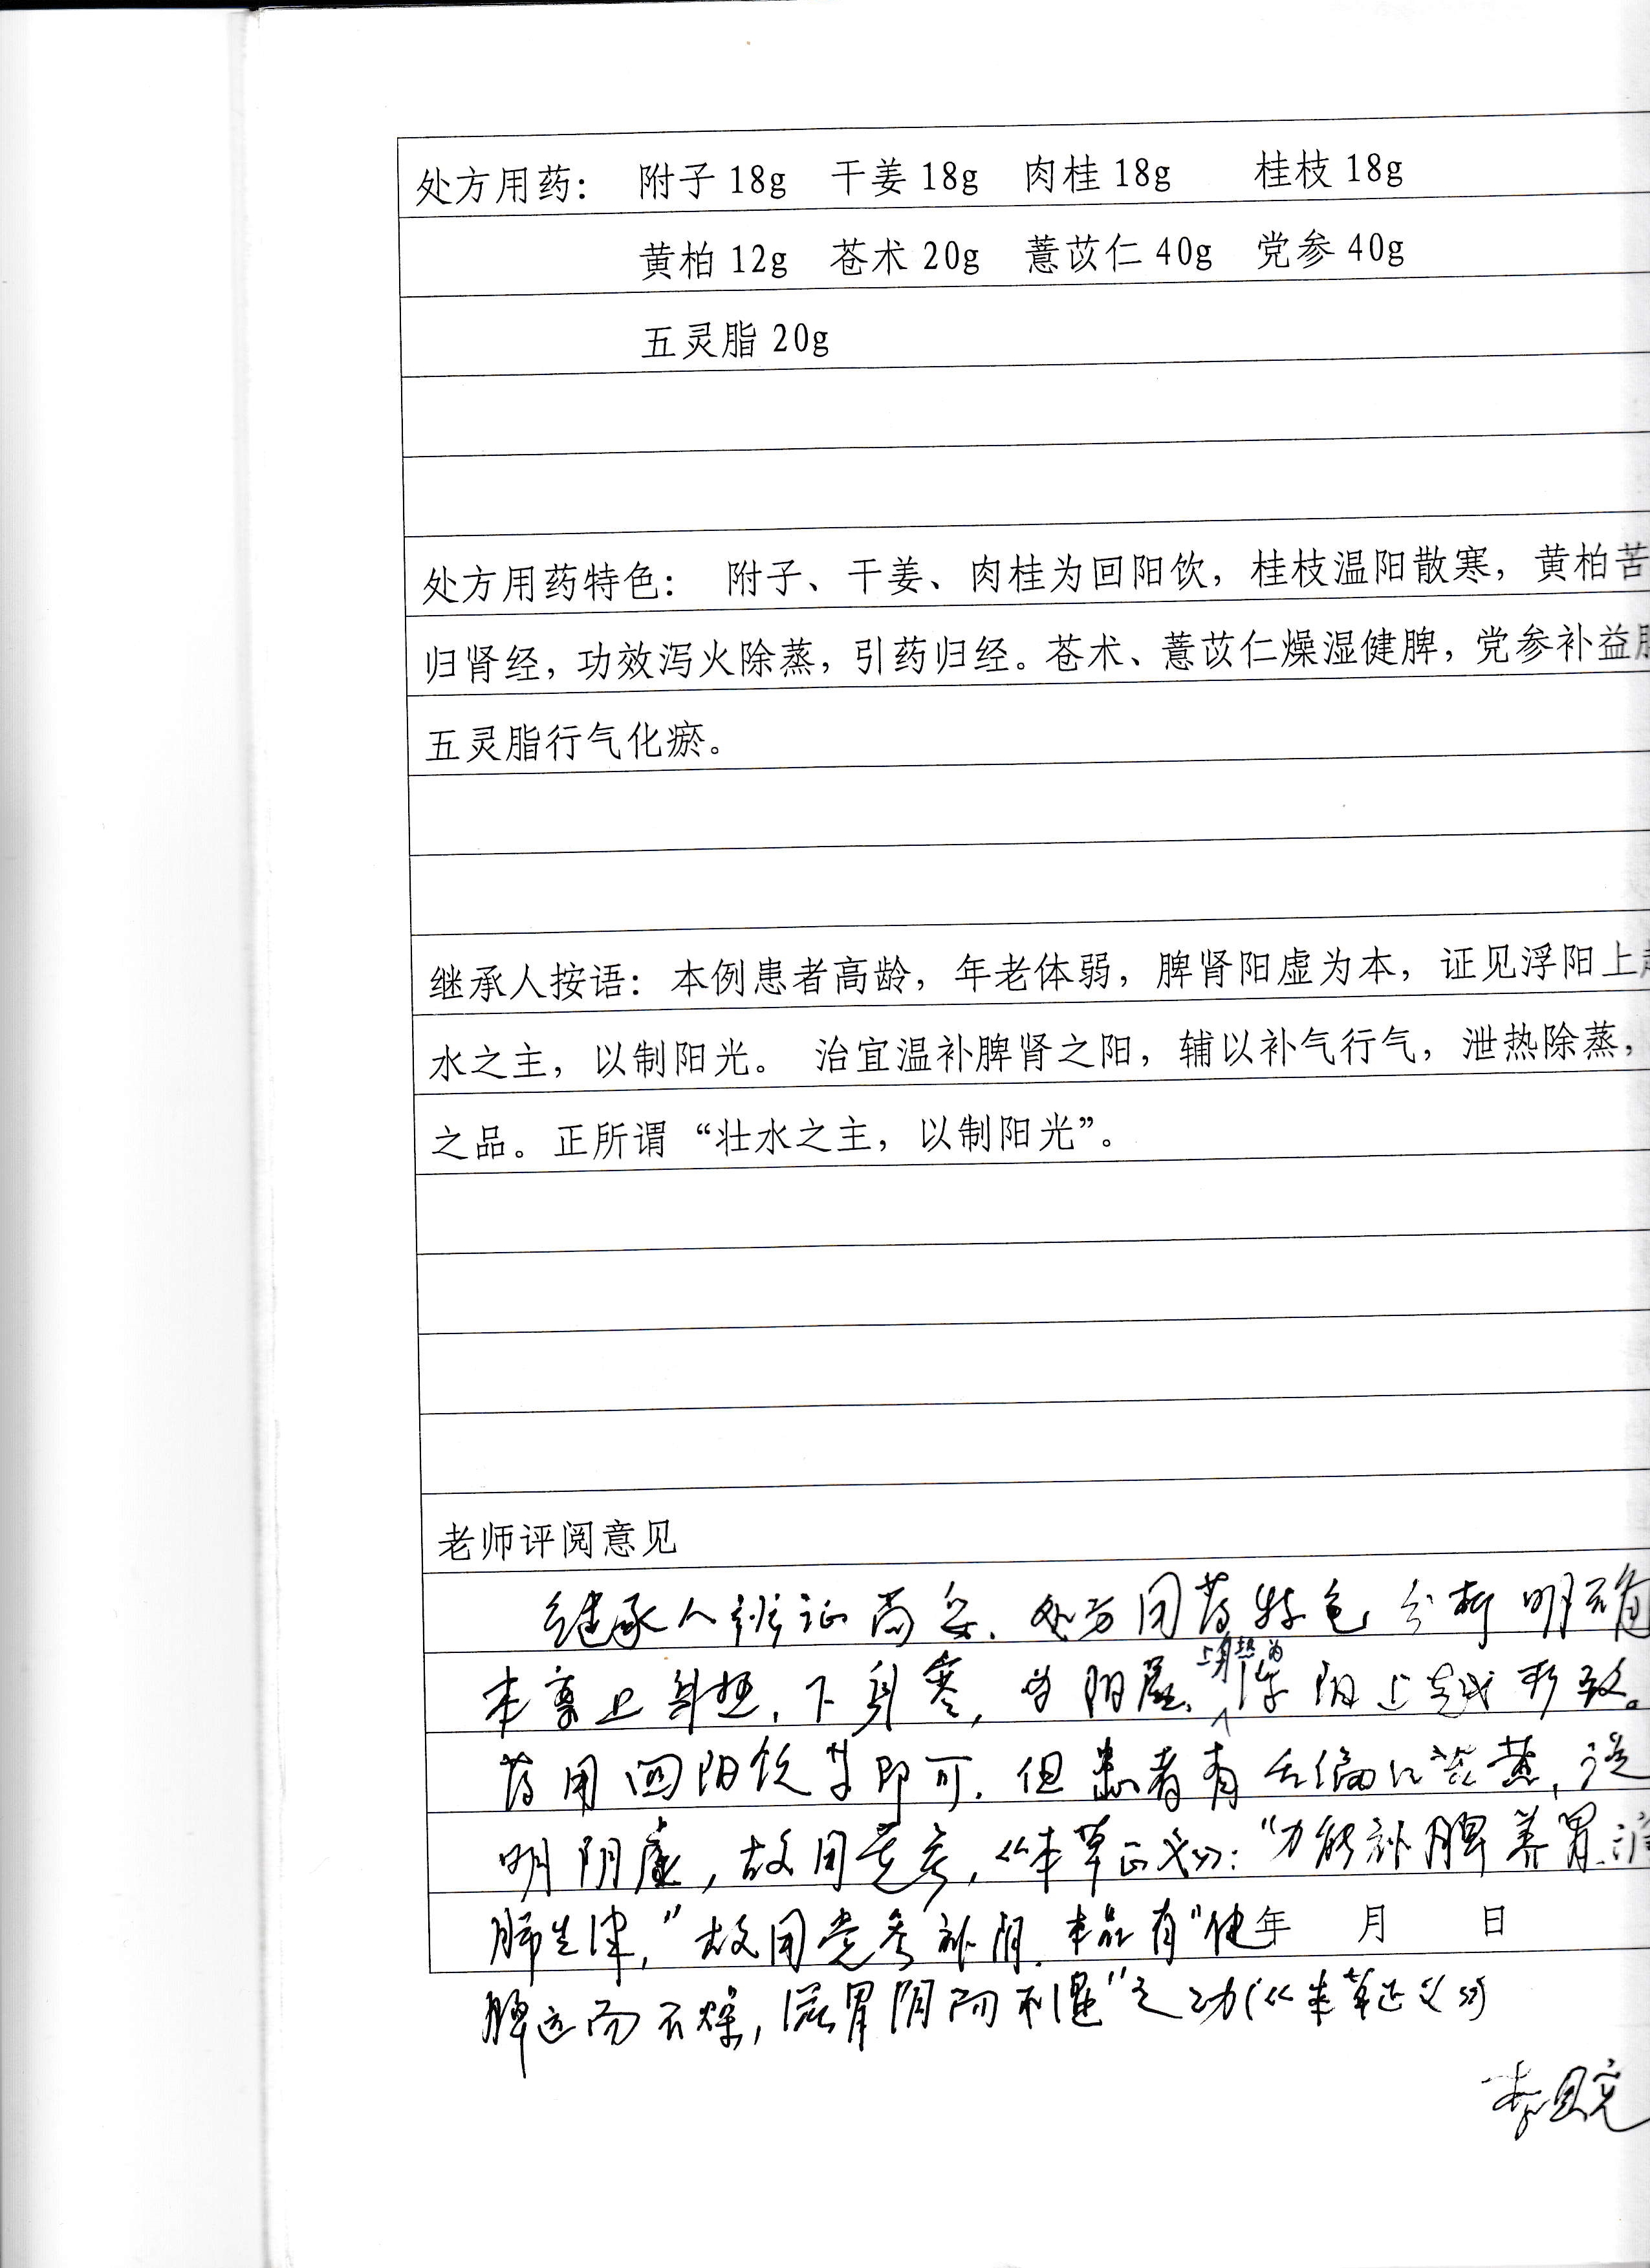 处方用药： 附子 18g 干姜 18g 肉桂 18g 桂枝 18g
黄柏 12g 苍术 20g 薏苡仁 40g 党参 40g
五灵脂 20g
处方用药特色： 附子、干姜、肉桂为回阳饮，桂枝温阳散寒，黄柏苦
归肾经，功效泻火除蒸，引药归经。苍术、薏苡仁燥湿健脾，党参补益
五灵脂行气化瘀。
继承人按语：本例患者高龄，年老体弱，脾肾阳虚为本，证见浮阳上
水之主，以制阳光。 治宜温补脾肾之阳，辅以补气行气，泄热除蒸，
之品。正所谓“壮水之主，以制阳光”。
老师评阅意见
继承人辨证尚妥. 处方用药特色分析明确
上身热为
本案上身热, 下身寒, 为阳虚、浮阳上越所致。
药用回阳饮等即可. 但患者有舌偏红苔黄, 说
明阴虚, 故用党参,《本草正义》: “力能补脾养胃.润
肺生津,” 故用党参补阴. 本品有“健
年 月 日
脾运而不燥, 滋胃阴而不湿”之功(《本草正义》)